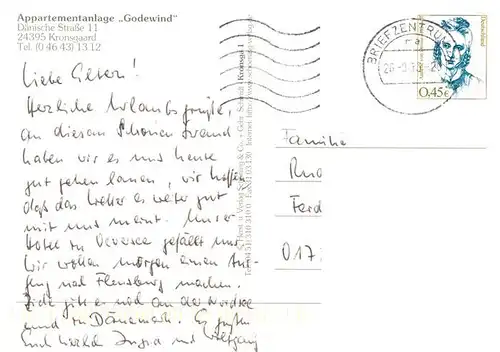 Appartementanlage „Godewind"
Dänische Straße 11
24395 Kronsgaard
Tel. (0 46 43) 13 12
Liebe Eltern!
Herzliche Urlaubsgrüße,
an diesem schönen Strand
haben wir es uns heute
gut gehen lassen, wir hoffen
daß das Wetter es weiter gut
mit uns meint. Unser
Hotel in gefällt uns
Wir wollen morgen einen Aus-
flug nach Flensburg machen.
gibt es noch an der Nordsee
und in Dänemark. Es grüßen
Euch herzlich Ingrid und Wolfgang
Familie
Rud
Ferd
017
BRIEFZENTRUM
Deutschland
0,45€